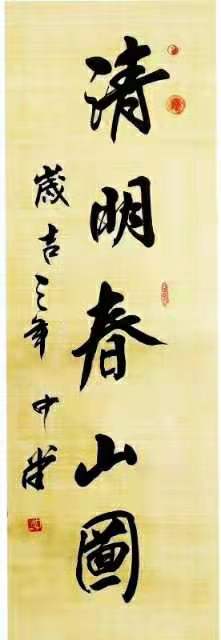 清明春山圖
歲吉三年 中